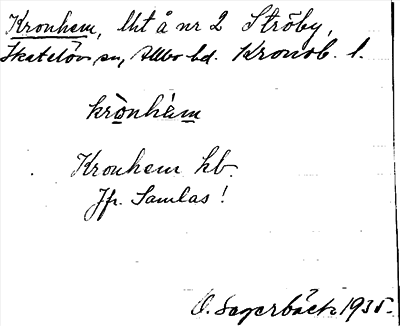 Kronhem, lht å nr 2 Ströby,
Skatelövs sn, Allbo hd. Kronob. l.
krònhèm
Kronhem kb.
Jfr. Samlas!
O. Sagerbäck 1935.